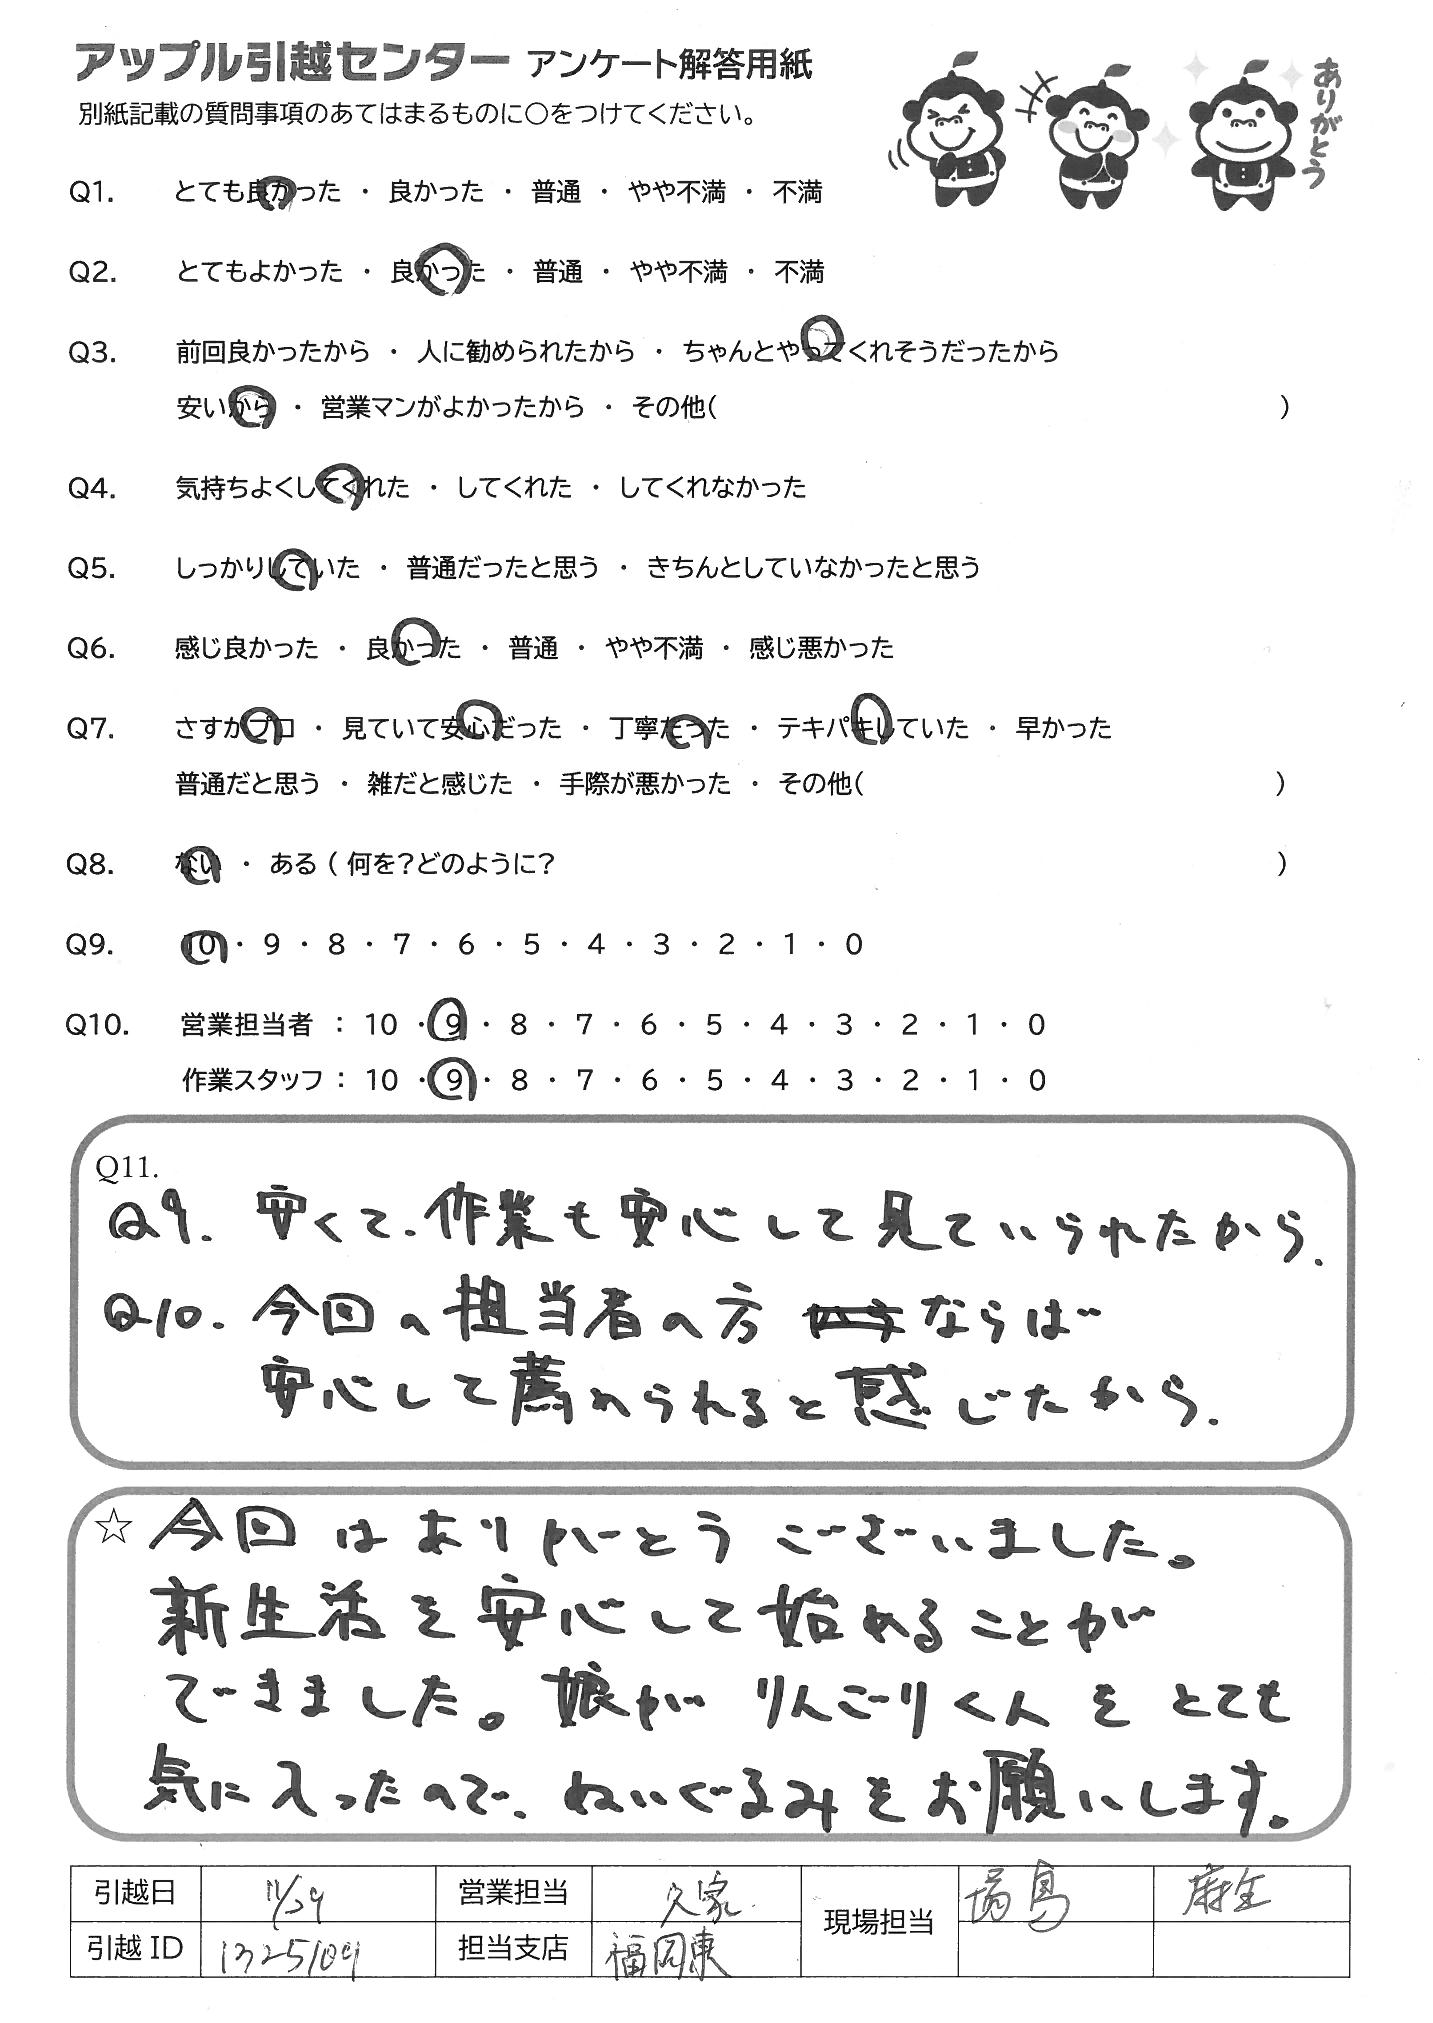 アップル引越センター アンケート解答用紙
別紙記載の質問事項のあてはまるものに○をつけてください。
ありがとう
Q1. とても良かった ・ 良かった ・ 普通 ・ やや不満 ・ 不満
Q2. とてもよかった ・ 良かった ・ 普通 ・ やや不満 ・ 不満
Q3. 前回良かったから ・ 人に勧められたから ・ ちゃんとやってくれそうだったから
安いから ・ 営業マンがよかったから ・ その他( )
Q4. 気持ちよくしてくれた ・ してくれた ・ してくれなかった
Q5. しっかりしていた ・ 普通だったと思う ・ きちんとしていなかったと思う
Q6. 感じ良かった ・ 良かった ・ 普通 ・ やや不満 ・ 感じ悪かった
Q7. さすがプロ ・ 見ていて安心だった ・ 丁寧だった ・ テキパキしていた ・ 早かった
普通だと思う ・ 雑だと感じた ・ 手際が悪かった ・ その他( )
Q8. ない ・ ある ( 何を?どのように? )
Q9. 10 ・ 9 ・ 8 ・ 7 ・ 6 ・ 5 ・ 4 ・ 3 ・ 2 ・ 1 ・ 0
Q10. 営業担当者 : 10 ・ 9 ・ 8 ・ 7 ・ 6 ・ 5 ・ 4 ・ 3 ・ 2 ・ 1 ・ 0
作業スタッフ : 10 ・ 9 ・ 8 ・ 7 ・ 6 ・ 5 ・ 4 ・ 3 ・ 2 ・ 1 ・ 0
Q11.
Q9. 安くて、作業も安心して見ていられたから.
Q10. 今回の担当者の方ならば
安心して薦められると感じたから.
☆ 今回はありがとうございました。
新生活を安心して始めることが
できました。娘がりんごりくんをとても
気に入ったので、ぬいぐるみをお願いします。
引越日 11/29 営業担当 久家 現場担当 麻生
引越ID 1325109 担当支店 福岡東